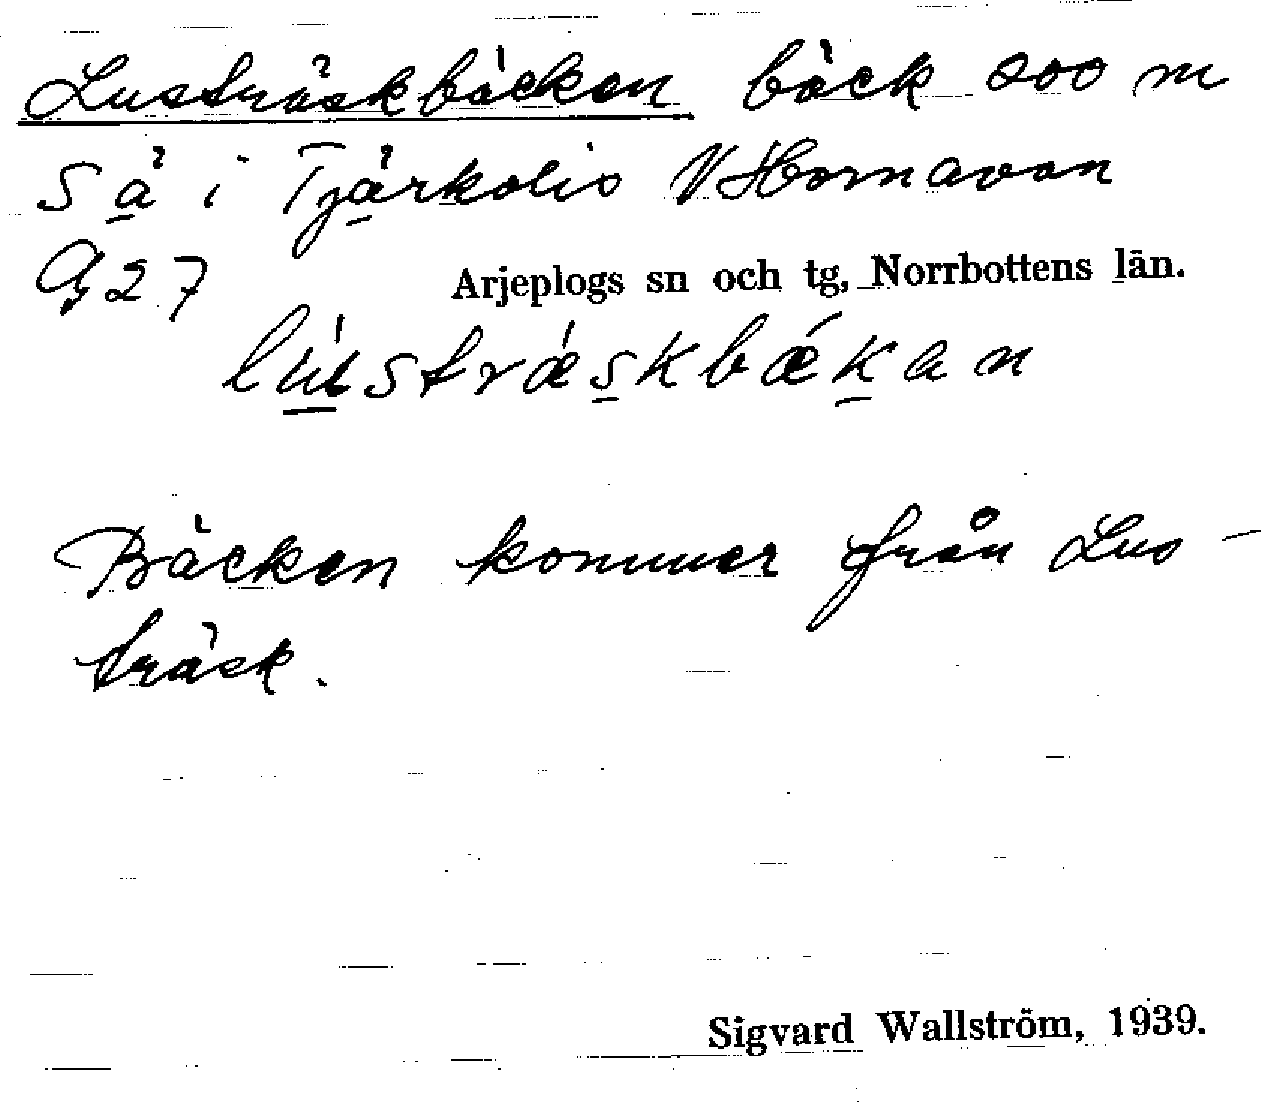 Lusträskbäcken bäck 200 m
S ä i Tjärkolis V Hornavan
G 27
Arjeplogs sn och tg, Norrbottens län.
lústræskbǽkan
Bäcken kommer från Lus-
träsk.
Sigvard Wallström, 1939.